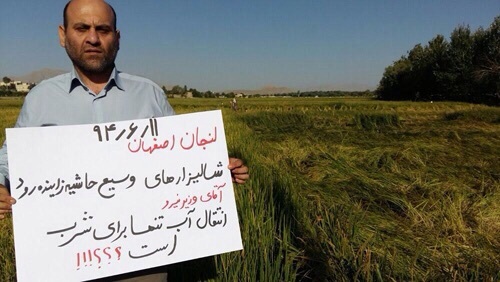 ۹۴٫۶٫۱۱
لنجان اصفهان
شالیزارهای وسیع حاشیه زاینده رود
آقای وزیر نیرو
انتقال آب تنها برای شرب
است ؟؟؟!!!